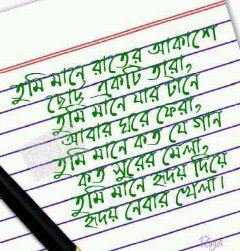 তুমি মানে রাতের আকাশে
ছোট্ট একটি তারা,
তুমি মানে যার টানে
আবার ঘরে ফেরা,
তুমি মানে কত যে গান
কত সুরের মেলা,
তুমি মানে হৃদয় দিয়ে
হৃদয় নেবার খেলা।
Roja